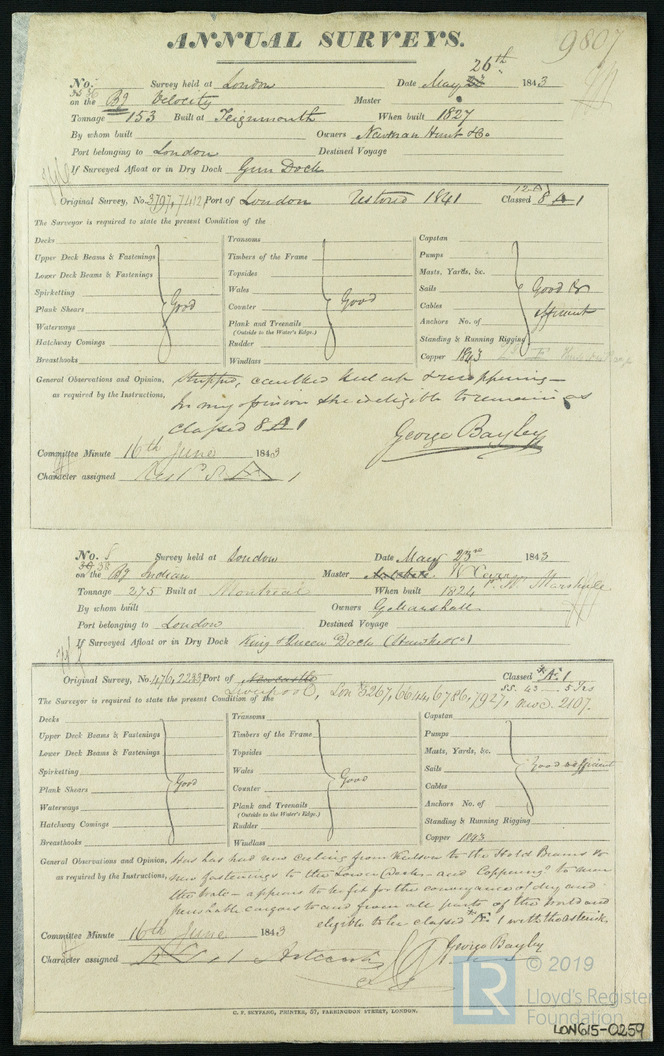 ANNUAL SURVEYS.
9807
26th
No. Survey held at London Date May 1843
on the Bg Velocity Master
Tonnage 153 Built at Teignmouth When built 1827
By whom built Owners Newman Hunt & Co
Port belonging to London Destined Voyage
If Surveyed Afloat or in Dry Dock Gun Dock
12 A
Original Survey, No. 3797, 7412 Port of London Restored 1841 Classed 8 A 1
The Surveyor is required to state the present Condition of the
Decks Transoms Capstan
Upper Deck Beams & Fastenings Timbers of the Frame Pumps
Lower Deck Beams & Fastenings Topsides Masts, Yards, &c.
Spirketting Wales Sails Good &
Plank Shears Good Counter Good Cables efficient
Waterways Plank and Treenails Anchors No. of
(Outside to the Water's Edge.)
Hatchway Comings Rudder Standing & Running Rigging
Breasthooks Windlass Copper 1843
General Observations and Opinion, Stripped, caulked
as required by the Instructions, In my opinion she is eligible to remain as
classed 8 A 1
George Bayley
Committee Minute 16th June 1843
Character assigned
No. Survey held at London Date May 23rd 1843
on the Bg Indian Master
Tonnage 275 Built at Montreal When built 1824
By whom built Owners G Marshall
Port belonging to London Destined Voyage
If Surveyed Afloat or in Dry Dock King & Queen Dock
Original Survey, No. 476, 2233 Port of Newcastle Classed Æ 1
Liverpool, Lon 5267, 6644, 6786, 7927, Newc. 2107.
The Surveyor is required to state the present Condition of the
Decks Transoms Capstan
Upper Deck Beams & Fastenings Timbers of the Frame Pumps
Lower Deck Beams & Fastenings Topsides Masts, Yards, &c.
Spirketting Wales Sails Good & efficient
Plank Shears Good Counter Good Cables
Waterways Plank and Treenails Anchors No. of
(Outside to the Water's Edge.)
Hatchway Comings Rudder Standing & Running Rigging
Breasthooks Windlass Copper 1843
General Observations and Opinion, Has had new ceiling from Keelson to the Hold Beams &
as required by the Instructions, new fastenings to the Lower Deck and Coppering
appears to be fit for the conveyance of dry and
perishable cargoes to and from all parts of the World and
eligible to be classed Æ 1 with the asterisk.
Committee Minute 16th June 1843
George Bayley
Character assigned
C. F. SEYFANG, PRINTER, 57, FARRINGDON STREET, LONDON.
LR
© 2019
Lloyd's Register
Foundation
LON615-0259